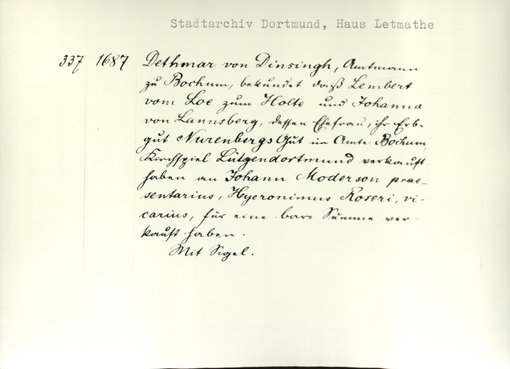 Stadtarchiv Dortmund, Haus Letmathe
337 1687 Dethmar von Dinsingh, Amtmann
zu Bochum, bekundet daß Lembert
vom Loe zum Holte und Johanna
von Lannsberg, dessen Ehefrau, ihr Erb-
gut Nurenbergs Gut im Amte Bochum
Kirchspiel Lütgendortmund verkauft
haben an Johann Moderson prae-
sentarius, Hyeronimus Roseri, vi-
carius, für eine bare Summe ver-
kauft haben.
Mit Sigel.